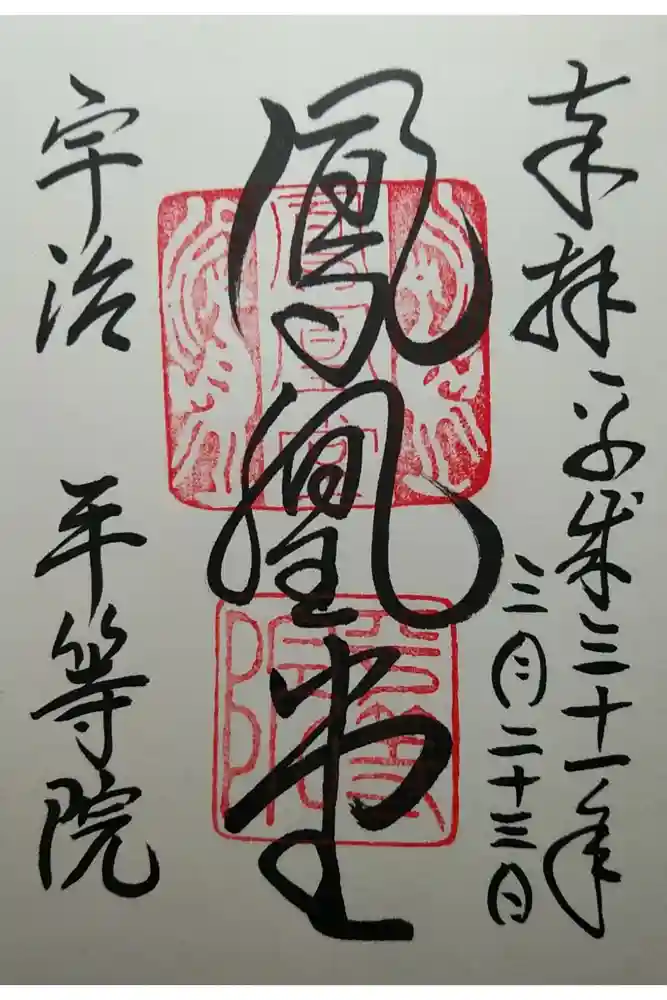 奉拝
平成三十一年
三月二十三日
鳳凰堂
宇治
平等院